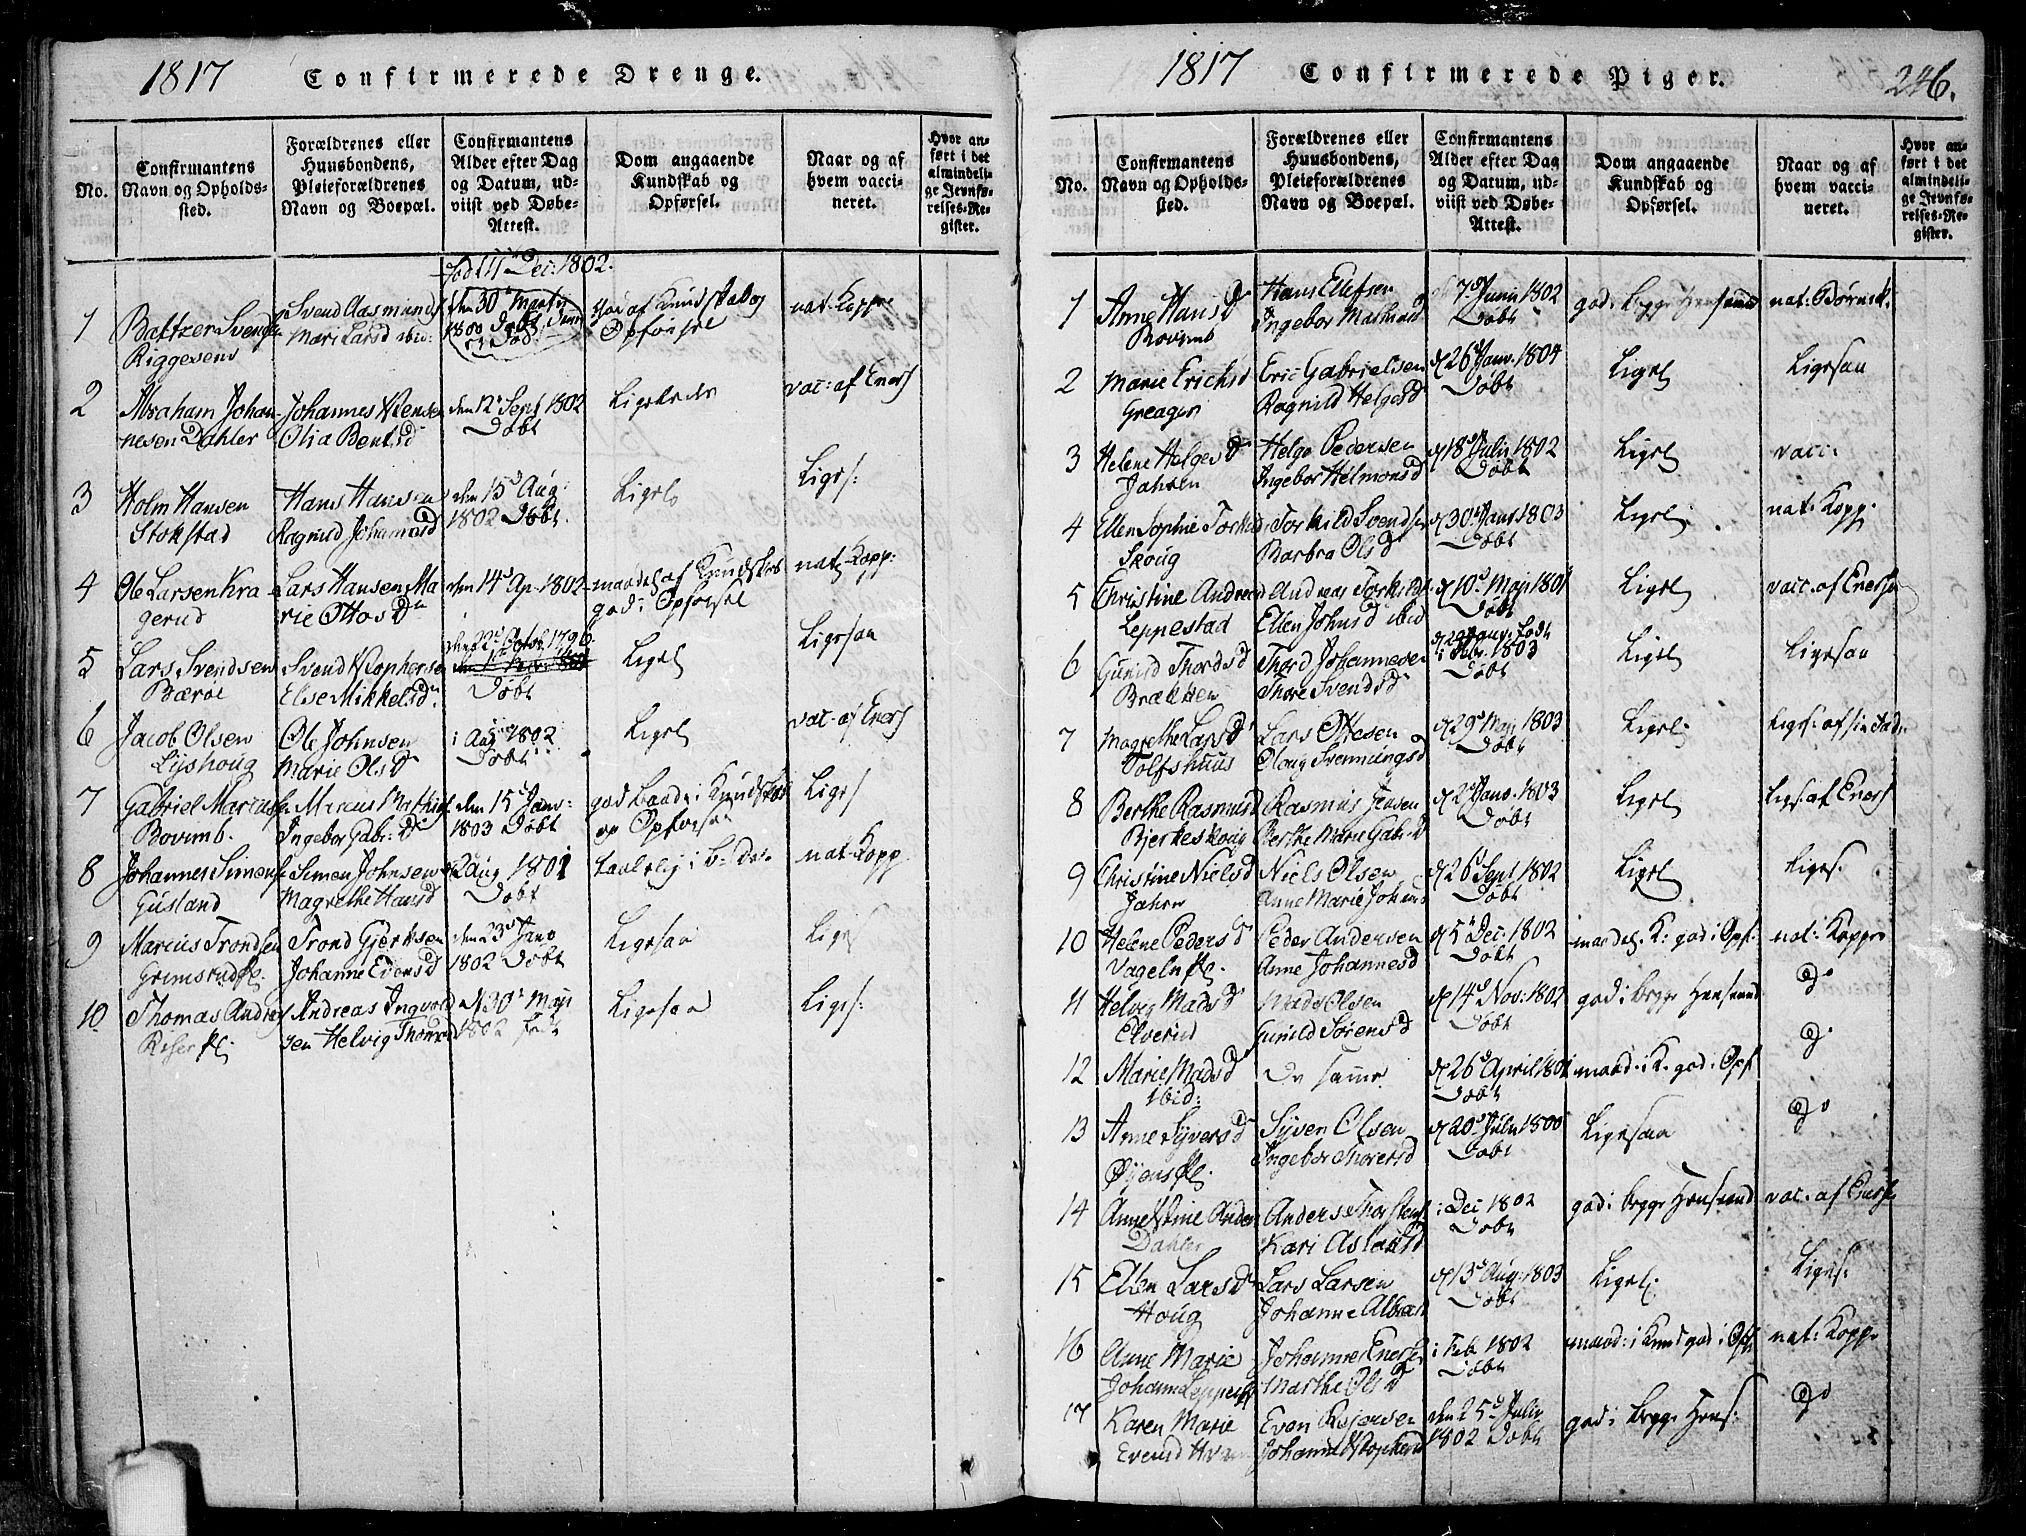 1817 Confirmerede Drenge.
No.
Confirmantens
Navn og Opholds-
sted.
Forældrenes eller
Huusbondens,
Pleieforældrenes
Navn og Boepæl.
Confirmantens
Alder efter Dag
og Datum, ud-
viist ved Døbe-
Attest.
Dom angaaende
Kundskab og
Opførsel.
Naar og af
hvem vacci-
neret.
Hvor an-
ført i det
almindeli-
ge Jevnfø-
relses-Re-
gister.
født 11 Dec: 1802.
1
Baltzer Svends
Riggesens
Svend Aasmunds
Mari Larsd ibid:
den 30 Martij
1800 Døbt
god af Kundskab og
Opførsel
nat. Kopper
2
Abraham Johan-
nesen Dahler
Johannes
Olia Bentsd
den 12 Sept 1802
Døbt
Ligeledes
vac: af Eners
3
Holm Hansen
Stokstad
Hans Hansen
Ragnild Johansd
den 15d Aug:
1802 Døbt.
Ligel
Liges:
4
Ole Larsen Kra
gerud
Lars Hansen Ma
rie Ottosd
den 14d Ap. 1802
maadel. af Kundskab
god i Opførsel
nat. Kopp:
5
Lars Svendsen
Bærøe
Svend Xstophersen
Else Mikkelsd
den 22d Octob. 1796
Døbt
Ligel
Ligesaa
6
Jacob Olsen
Lijshoug
Ole Johnsen
Marie Olsd
i Aug 1802
Døbt
Ligel
vac. af Eners
7
Gabriel Marcus
Bovimb.
Marcus Mathies
Ingebor Gabr. D
den 15d Janv:
1803 Døbt
god baade i Kundskab
og Opførsel
Liges
8
Johannes Simens
Gusland
Simen Johnsen
Magrethe Hansd
Aug 1801
Døbt
taalelig i b. Dele
nat. Kopp
9
Marcus Trondsen
Grimsrud
Trond Gjertsen
Johanne Evensd
den 23d Janv
1802 Døbt
Ligesaa
Liges
10
Thomas Andreas
Andreas Ingvold
sen Helvig Thomasd
d 30 Maji
1802 født
Ligesaa
Liges:
1817 Confirmerede Piger. 246.
No.
Confirmantens
Navn og Opholds-
sted.
Forældrenes eller
Huusbondens,
Pleieforældrenes
Navn og Boepæl.
Confirmantens
Alder efter Dag
og Datum, ud-
viist ved Døbe-
Attest.
Dom angaaende
Kundskab og
Opførsel.
Naar og af
hvem vacci-
neret.
Hvor an-
ført i det
almindeli-
ge Jevnfø-
relses-Re-
gister.
1
Anne Hans D
Bovimb
Hans Ellefsen
Ingebor Mathiasd
7d Junii 1802
Døbt
god i begge Henseende
nat. Børnek.
2
Marie Erichsd
Greager
Eric Gabrielsen
Ragnild Helgesd
d 26 Janv. 1804
Døbt
Ligel
Ligesaa
3
Helene Helges D
Jahren
Helge Pedersen
Ingebor Helmonsd
d 18d Julii 1802
Døbt
Ligel
vacc:
4
Ellen Sophie Torkild
Skoug
Torkild Svendsen
Barbra Ols D
d 30 Janv 1803
Døbt
Ligel.
nat. Kopp.
5
Christine Andreasd
Leppestad
Andreas Torkilds
Ellen Johnsd ibid
d 10d Maj 1801
Døbt
Ligel
vacc. af Enersen
6
Gunild Thordsd
Brækken
Thord Johannesen
Thore Svends D
født
1803
Døbt
Ligel
Ligesaa
7
Magrethe Lars D
Tolfshuus
Lars Ottesen
Oloug Svenningsd
d 29d Maj 1803
Døbt
Ligel.
8
Berthe Rasmusd
Bjerkeskoug
Rasmus Jensen
Berthe Marie Gab. D
d 2d Janv. 1803
Døbt
Ligel
Liges. af Eners
9
Christine Nielsd
Jahren
Niels Olsen
Anne Marie Johansd
d 26d Sept 1802
Døbt
Ligel
Liges.
10
Helene Peders D
Peder Andersen
Anne Johannesd
d 5d Dec: 1802
Døbt
maadel. K: god i Opf.
nat: Kopper
11
Helvig Mads D
Elverud
Mads Olsen
Gunild Sørens D
d 14d Nov: 1802
Døbt
god i begge Henseend
do
12
Marie Mads D
Ibid:
De samme
d 26d April 1801
Døbt
maad. i K. god i Opf
do
13
Anne Syvers D
Syven Olsen
Ingebor Thorersd
d 20d Julii 1800
Døbt
Ligesaa
do
14
Anne Stine Anders
Dahler
Anders Thorstens
Kari Aslaksd
i Dec 1802
Døbt
god i begge Henseend
vac. af Eners
15
Ellen Lars D
Houg
Lars Larsen
Johanne
d 13d Aug: 1803
Døbt
Ligel.
Liges:
16
Anne Marie
Johannes Enersen
Marthe Ols D
i Feb 1802
Døbt
maad: i Kund god i Opf
nat: Kopper
17
Karen Marie
Evensd
Even
Johanne Xstophersd
den 25d Julii
1802 Døbt
god i begge Hens:
do